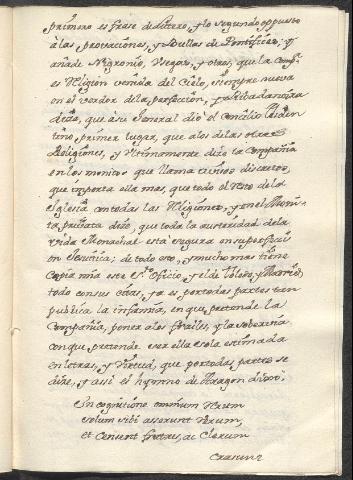 primero es frase de Lutero, y lo segundo oppuesto
à las provaciones, y Bullas de Pontifices; y
añade Nigronio, Negro, y otros, que la Comp.ª
es Religion venida del Cielo, siempre nueva
en el verdor de la perfeccion, y
dize, que à su General diò el Concilio
tino, primer lugar, que à los de las otras
Religiones, y Ultimamente dize la Compañia
en los monitos que llama
que importa ella mas, que todo el resto de la
Iglesia con todas las Religiones, y en el
dize, que toda la austeridad de la
vida Monachal està segura en
en de todo esto, y mucho mas tiene
Copia mia este S.to Oficio, y el de Toledo, y Madrid,
todo con sus citas, ya es por todas partes tan
publica la infamia, en que pretende la
Compañia, poner a los frailes, y la soberania
con que pretende ser ella sola estimada
en letras, y Virtud, que por todas partes se
dize, y assi el hymno de Aragon
In cognitione omnium rerum
solum sibi asserunt Verum,
et Censent fratres, ac Clerum